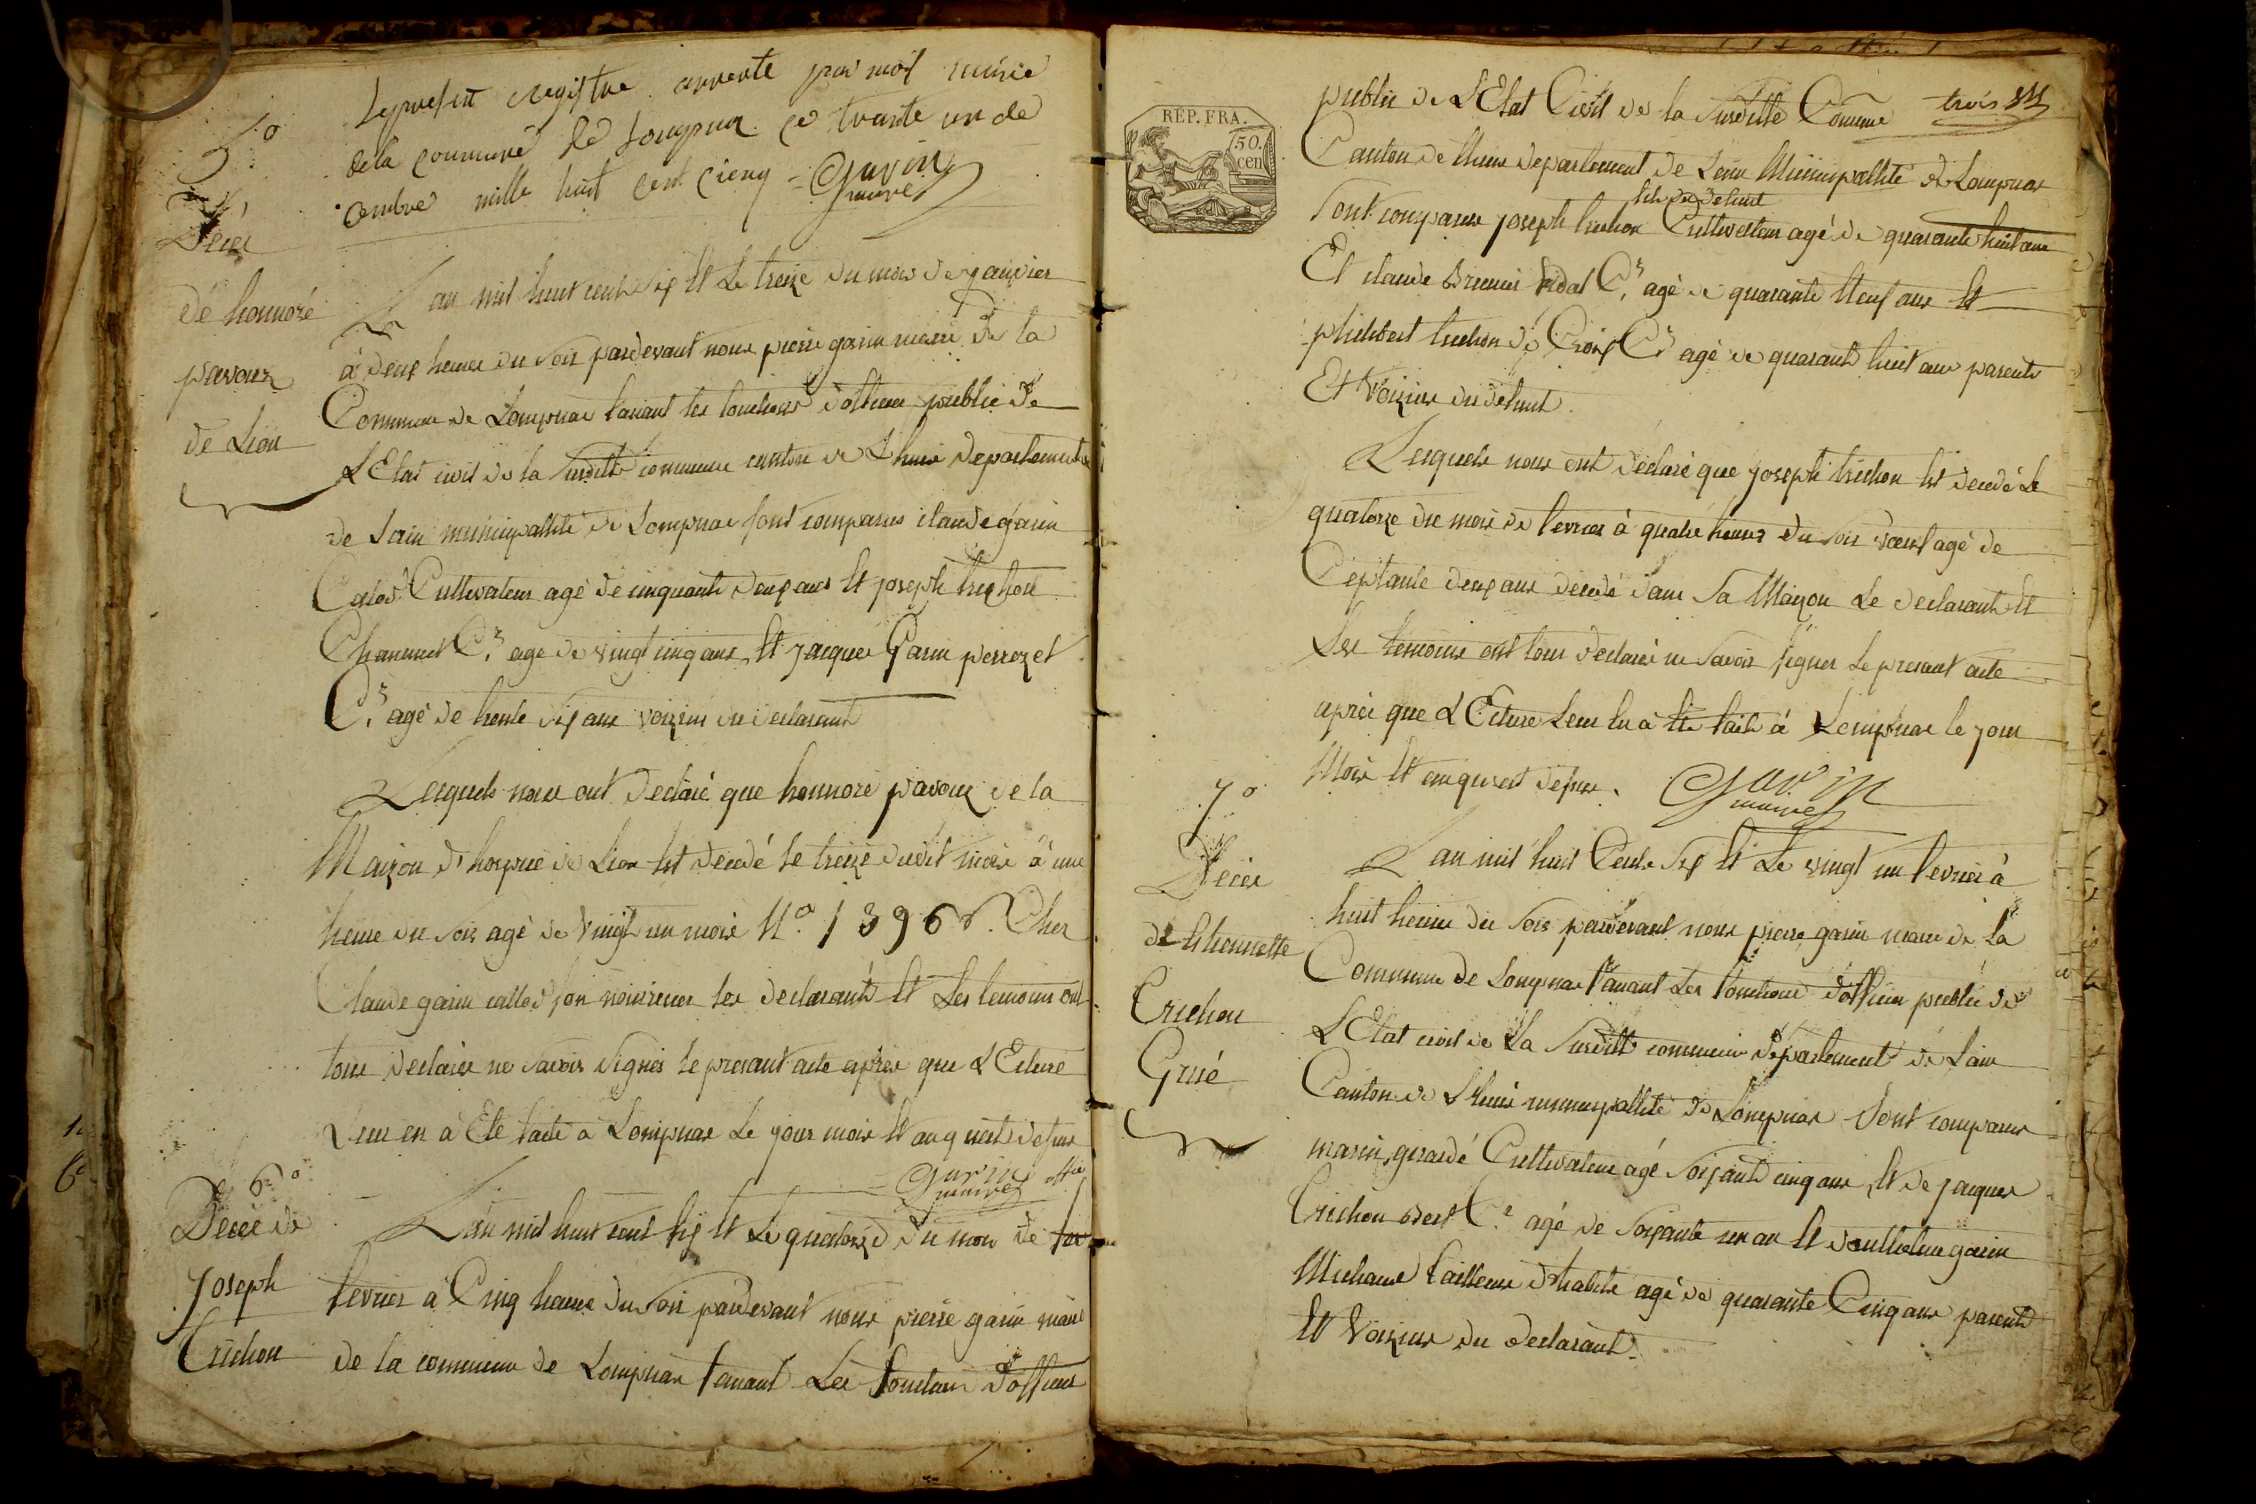 Le present registre arreté par moi maire
de la commune de Lompnax ce trante un de
cembre mille huit cent cienq Garin
maire
5°
Décès
dé honnoré
pavoux
de Lion
L'an mil huit cents six Et Le treize du mois de janvier
à deux heures du soir pardevant nous pierre garin maire de la
Commune de Lompnax faisant les fonctions d'officier public de
L'Etat civil de la susditte commune canton de Lhuis departement
de Lain municipallité de Lompnax sont comparus claude garin
Calod Cultivateur agé de cinquante deux ans Et joseph truchon
Chanuet C.r agé de vingt cinq ans, Et jacques Garin perrozet
C.r agé de trente six ans voizins du declarant
Lesquels nous ont Declaré que honnoré pavoux de la
Maizon d'hospice de Lion Est decedé le treize dudit mois à une
heure du soir agé de vingt un mois N.° 1396 Chez
Claude garin calod son nourricier les declarants Et Les temoins ont
tous declarés ne savoir signés le presant acte après que L'Ecture
Leur en à Eté faite à Lompnax Le jour mois Et an que dit desus
Garin
maire
6°
Décès de
Joseph
Truchon
L'an mil huit cent six Et Le quatorze du mois de
fevrier à Cinq heures du soir pardevant nous pierre garin maire
de la commune de Lompnax faisant Les fonctions d'officier
trois
REP. FRA.
50.
cen
public de L'Etat Civil de la susditte Commune
Canton de Lhuis departement de Lain Municipallité de Lompnax
fils du defunt
sont comparus joseph truchon Cultivateur agé de quarante huit ans
Et claude Vidal C.r agé de quarante Neuf ans Et
philibert truchon dé Croix C.r agé de quarante huit ans parents
Et Voizins du défunt.
Lesquels nous ont déclaré que joseph truchon Est decedé Le
quatorze du mois de fevrier à quatre heures du soir veuf agé de
Ceptante deux ans decedé dans sa Maizon Le declarant Et
Les temoins ont tous declarés ne savoir signer Le presant acte
après que L'Ecture Leur en à Eté faite à Lompnax le jour
Mois Et an que dit desus. Garin
maire
7°
Décès
dé
Truchon
Grisé
L'an mil huit Cents six Et Le vingt un fevrier à
huit heures du soir pardevant nous pierre garin maire de la
Commune de Lompnax faisant Les fonctions d'officier public de
L'Etat civil de La susditte commune departement de Lain
Canton de Lhuis municipallité de Lompnax sont comparus
marin girardé Cultivateur agé soixante cinq ans, Et de jacques
Truchon C.r agé de soixante un an Et garin
Michaud tailleur d'habits agé de quarante Cinq ans parents
Et Voizins du declarant.